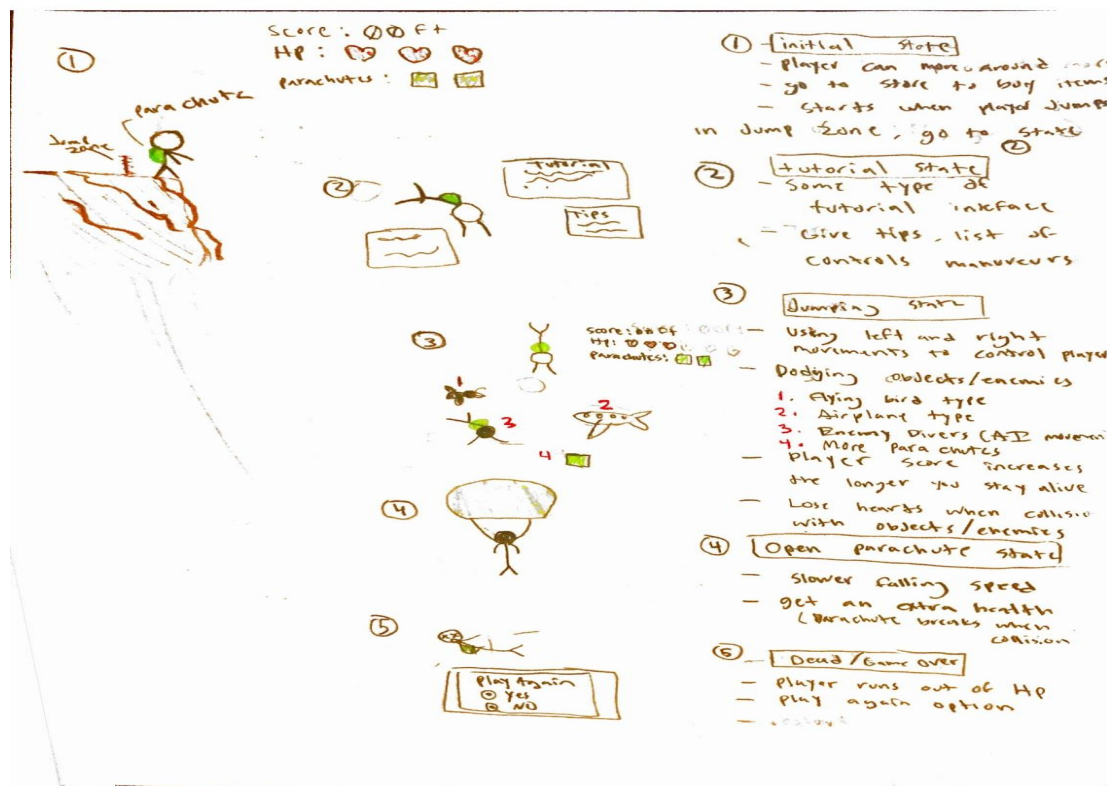 ①
Score: 00 Ft
HP:
parachutes:
parachute
Jump
zone
②
tutorial
Tips
③
Score:
HP:
parachutes:
1
2
3
4
④
⑤
Play Again
Yes
NO
① - initial state
- player can move around
- go to store to buy items
- starts when player Jumps
in Jump Zone, go to state
②
② tutorial state
- Some type of
tutorial
- Give tips, list of
controls
③
Jumping state
- Using left and right
movements to control player
- Dodging objects/enemies
1. Flying bird type
2. Airplane type
3. Enemy Divers (AI
4. More Parachutes
- Player score increases
the longer you stay alive
- Lose hearts when
with objects/enemies
④ Open parachute state
- slower falling speed
- get an extra health
(Parachute breaks when
collision
⑤ - Dead/Game over
- Player runs out of HP
- Play again option
-